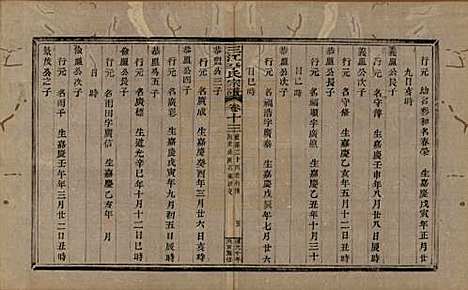 行元 幼名彩和名春榮 生嘉慶戊寅年正月廿
九日亥時
義凰公長子
行元 名守滌 生嘉慶癸酉年八月廿八日辰時
義凰公次子
行元 名守備 生嘉慶乙亥年五月廿八日辰時
恭凰公長子
行元 名福順字廣嶽 生嘉慶乙丑年十月三十
日巳時
恭凰公次子
行元 名福浩字廣泰 生嘉慶庚午年七月廿六
日巳時
氏宗譜 卷十三
恭凰公三子
行元 名廣成 生嘉慶癸酉年三月廿六日亥時
恭凰公四子
行元 名廣彩 生嘉慶戊寅年九月初五日辰時
恭凰公五子
行元 名廣標 生道光辛巳年十月十二日巳時
儉凰公長子
行元 名雨田字廣信 生嘉慶乙亥年 月
日 時
儉凰公次子
行元 名雨千 生嘉慶壬午年三月廿二日丑時
景茂公之子